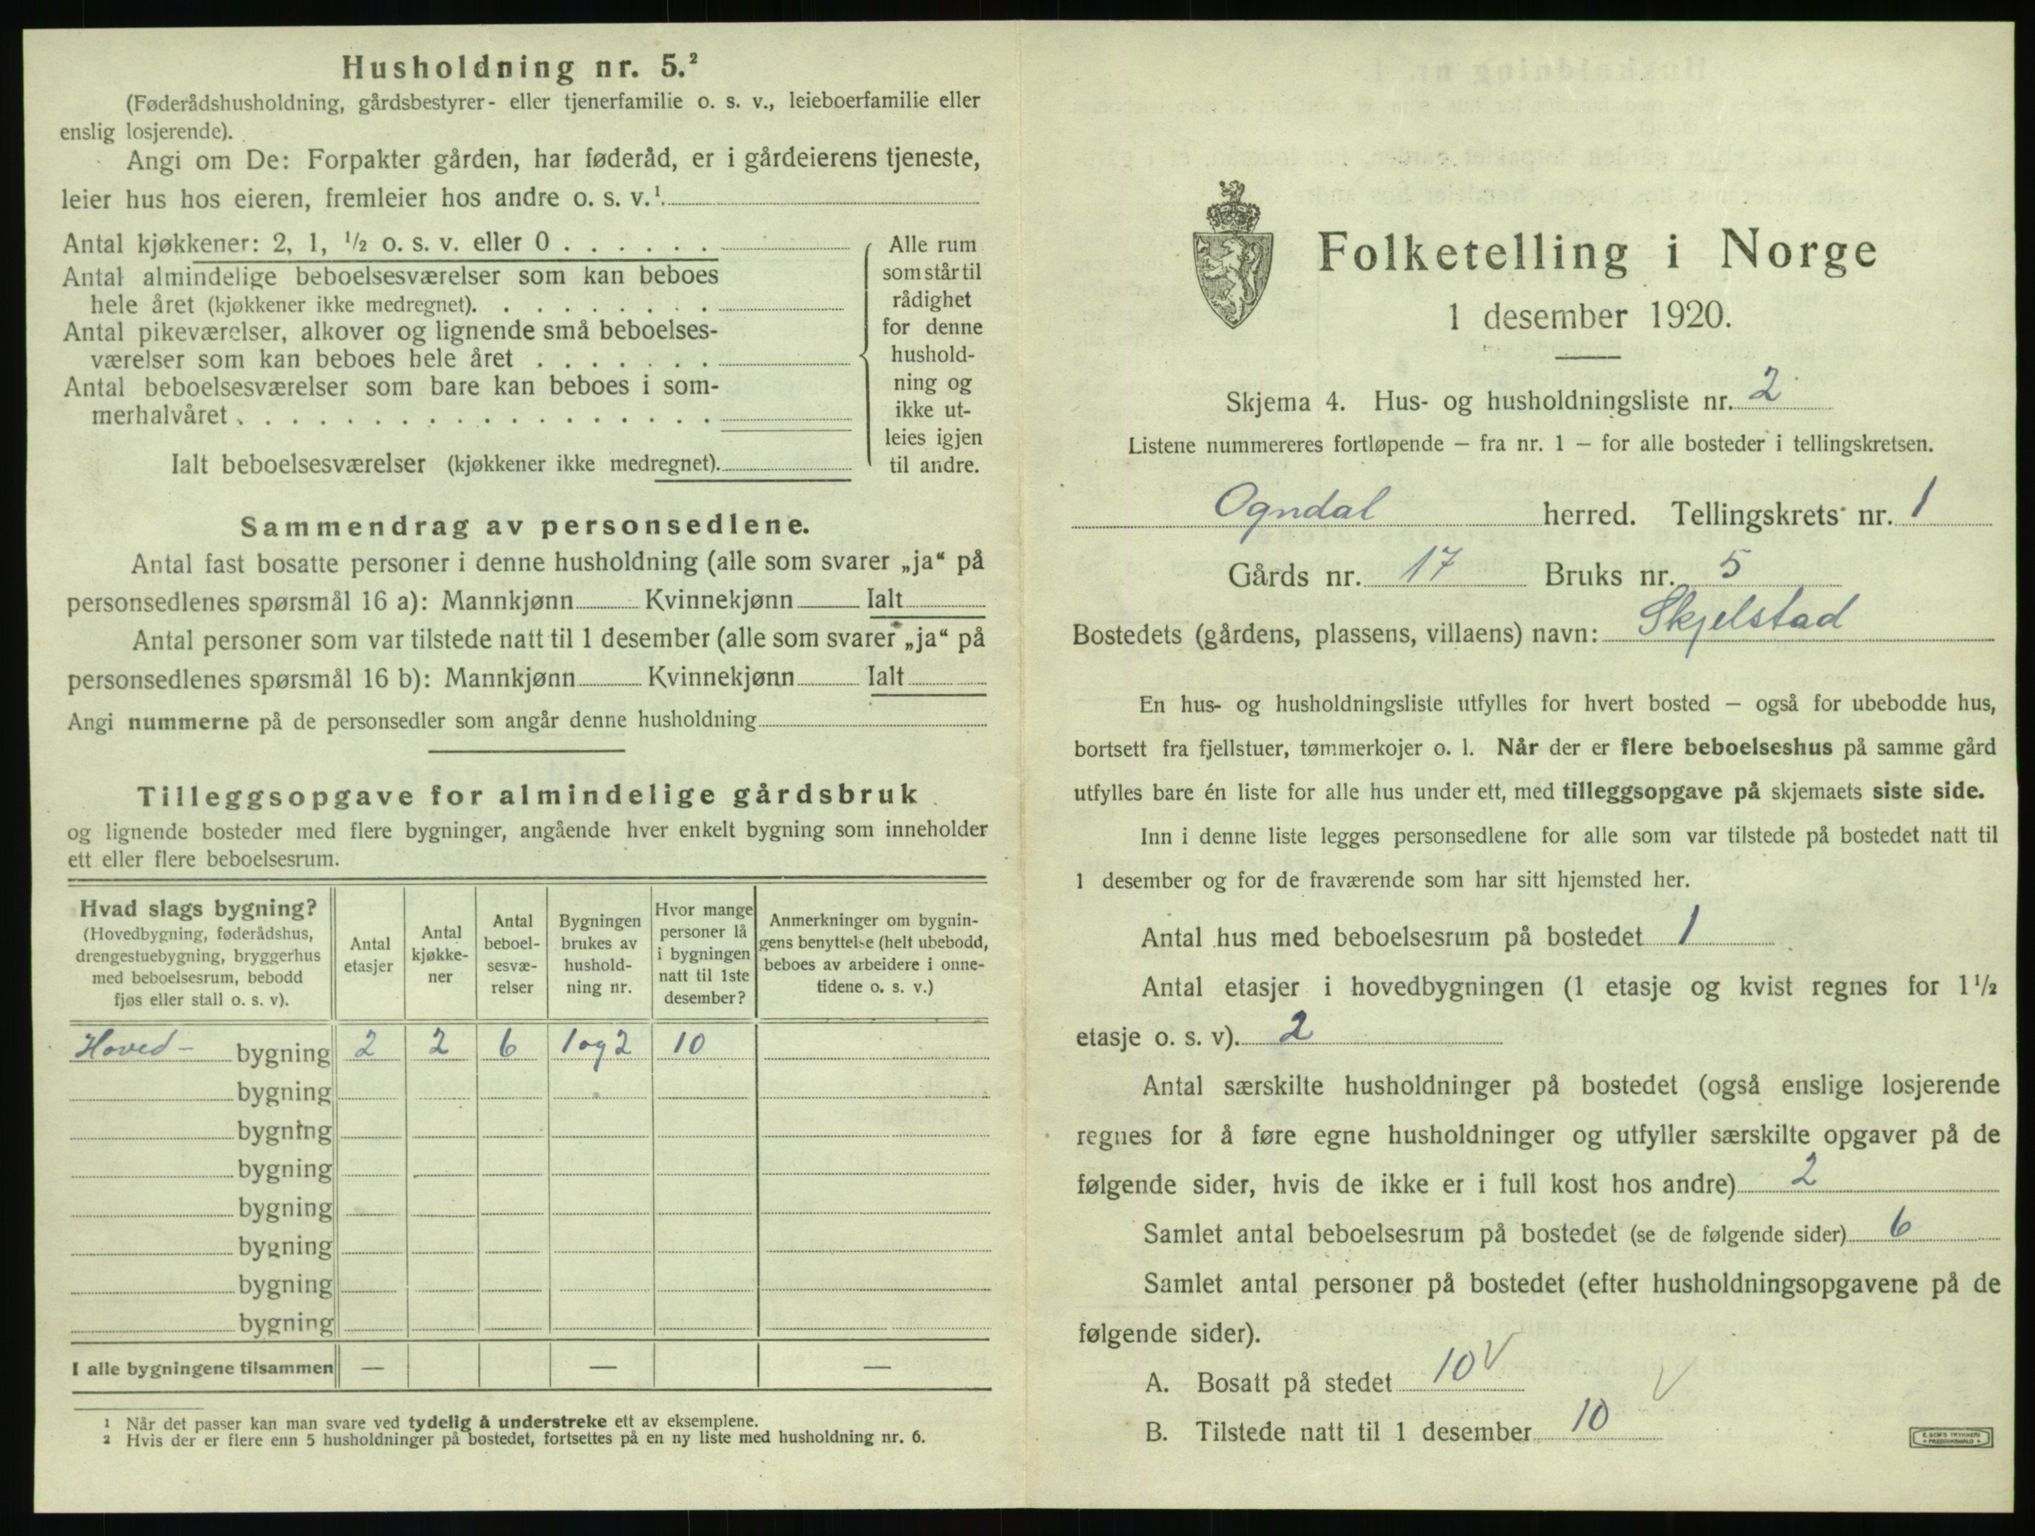 Husholdning nr. 5.²
(Føderådshusholdning, gårdsbestyrer- eller tjenerfamilie o. s. v., leieboerfamilie eller
enslig losjerende).
Angi om De: Forpakter gården, har føderåd, er i gårdeierens tjeneste,
leier hus hos eieren, fremleier hos andre o. s. v.¹
Antal kjøkkener: 2, 1, ½ o. s. v. eller 0 . . . . . .
Antal almindelige beboelsesværelser som kan beboes
hele året (kjøkkener ikke medregnet). . . . . . . . .
Antal pikeværelser, alkover og lignende små beboelses-
værelser som kan beboes hele året . . . . . . .
Antal beboelsesværelser som bare kan beboes i som-
merhalvåret . . . . . . . . . . . . . . . . . .
Ialt beboelsesværelser (kjøkkener ikke medregnet).
Alle rum
som står til
rådighet
for denne
hushold-
ning og
ikke ut-
leies igjen
til andre.
Sammendrag av personsedlene.
Antal fast bosatte personer i denne husholdning (alle som svarer „ja“ på
personsedlenes spørsmål 16 a): Mannkjønn Kvinnekjønn Ialt
Antal personer som var tilstede natt til 1 desember (alle som svarer „ja“ på
personsedlenes spørsmål 16 b): Mannkjønn Kvinnekjønn Ialt
Angi nummerne på de personsedler som angår denne husholdning
Tilleggsopgave for almindelige gårdsbruk
og lignende bosteder med flere bygninger, angående hver enkelt bygning som inneholder
ett eller flere beboelsesrum.
Hvad slags bygning?
(Hovedbygning, føderådshus,
drengestuebygning, bryggerhus
med beboelsesrum, bebodd
fjøs eller stall o. s. v).
Antal
etasjer
Antal
kjøkke-
ner
Antal
beboel-
sesvæ-
relser
Bygningen
brukes av
hushold-
ning nr.
Hvor mange
personer lå
i bygningen
natt til 1ste
desember?
Anmerkninger om bygnin-
gens benyttelse (helt ubebodd,
beboes av arbeidere i onne-
tidene o. s. v.)
Hoved- bygning 2 2 6 1 og 2 10
bygning
bygning
bygning
bygning
bygning
bygning
bygning
I alle bygningene tilsammen — — —
1 Når det passer kan man svare ved tydelig å understreke ett av eksemplene.
2 Hvis der er flere enn 5 husholdninger på bostedet, fortsettes på en ny liste med husholdning nr. 6.
Folketelling i Norge
1 desember 1920.
Skjema 4. Hus- og husholdningsliste nr. 2
Listene nummereres fortløpende — fra nr. 1 — for alle bosteder i tellingskretsen.
Ogndal herred. Tellingskrets nr. 1
Gårds nr. 17 Bruks nr. 5
Bostedets (gårdens, plassens, villaens) navn: Skjelstad
En hus- og husholdningsliste utfylles for hvert bosted — også for ubebodde hus,
bortsett fra fjellstuer, tømmerkojer o. l. Når der er flere beboelseshus på samme gård
utfylles bare én liste for alle hus under ett, med tilleggsopgave på skjemaets siste side.
Inn i denne liste legges personsedlene for alle som var tilstede på bostedet natt til
1 desember og for de fraværende som har sitt hjemsted her.
Antal hus med beboelsesrum på bostedet 1
Antal etasjer i hovedbygningen (1 etasje og kvist regnes for 1½
etasje o. s. v). 2
Antal særskilte husholdninger på bostedet (også enslige losjerende
regnes for å føre egne husholdninger og utfyller særskilte opgaver på de
følgende sider, hvis de ikke er i full kost hos andre) 2
Samlet antal beboelsesrum på bostedet (se de følgende sider) 6
Samlet antal personer på bostedet (efter husholdningsopgavene på de
følgende sider).
A. Bosatt på stedet 10 V
B. Tilstede natt til 1 desember 10 V